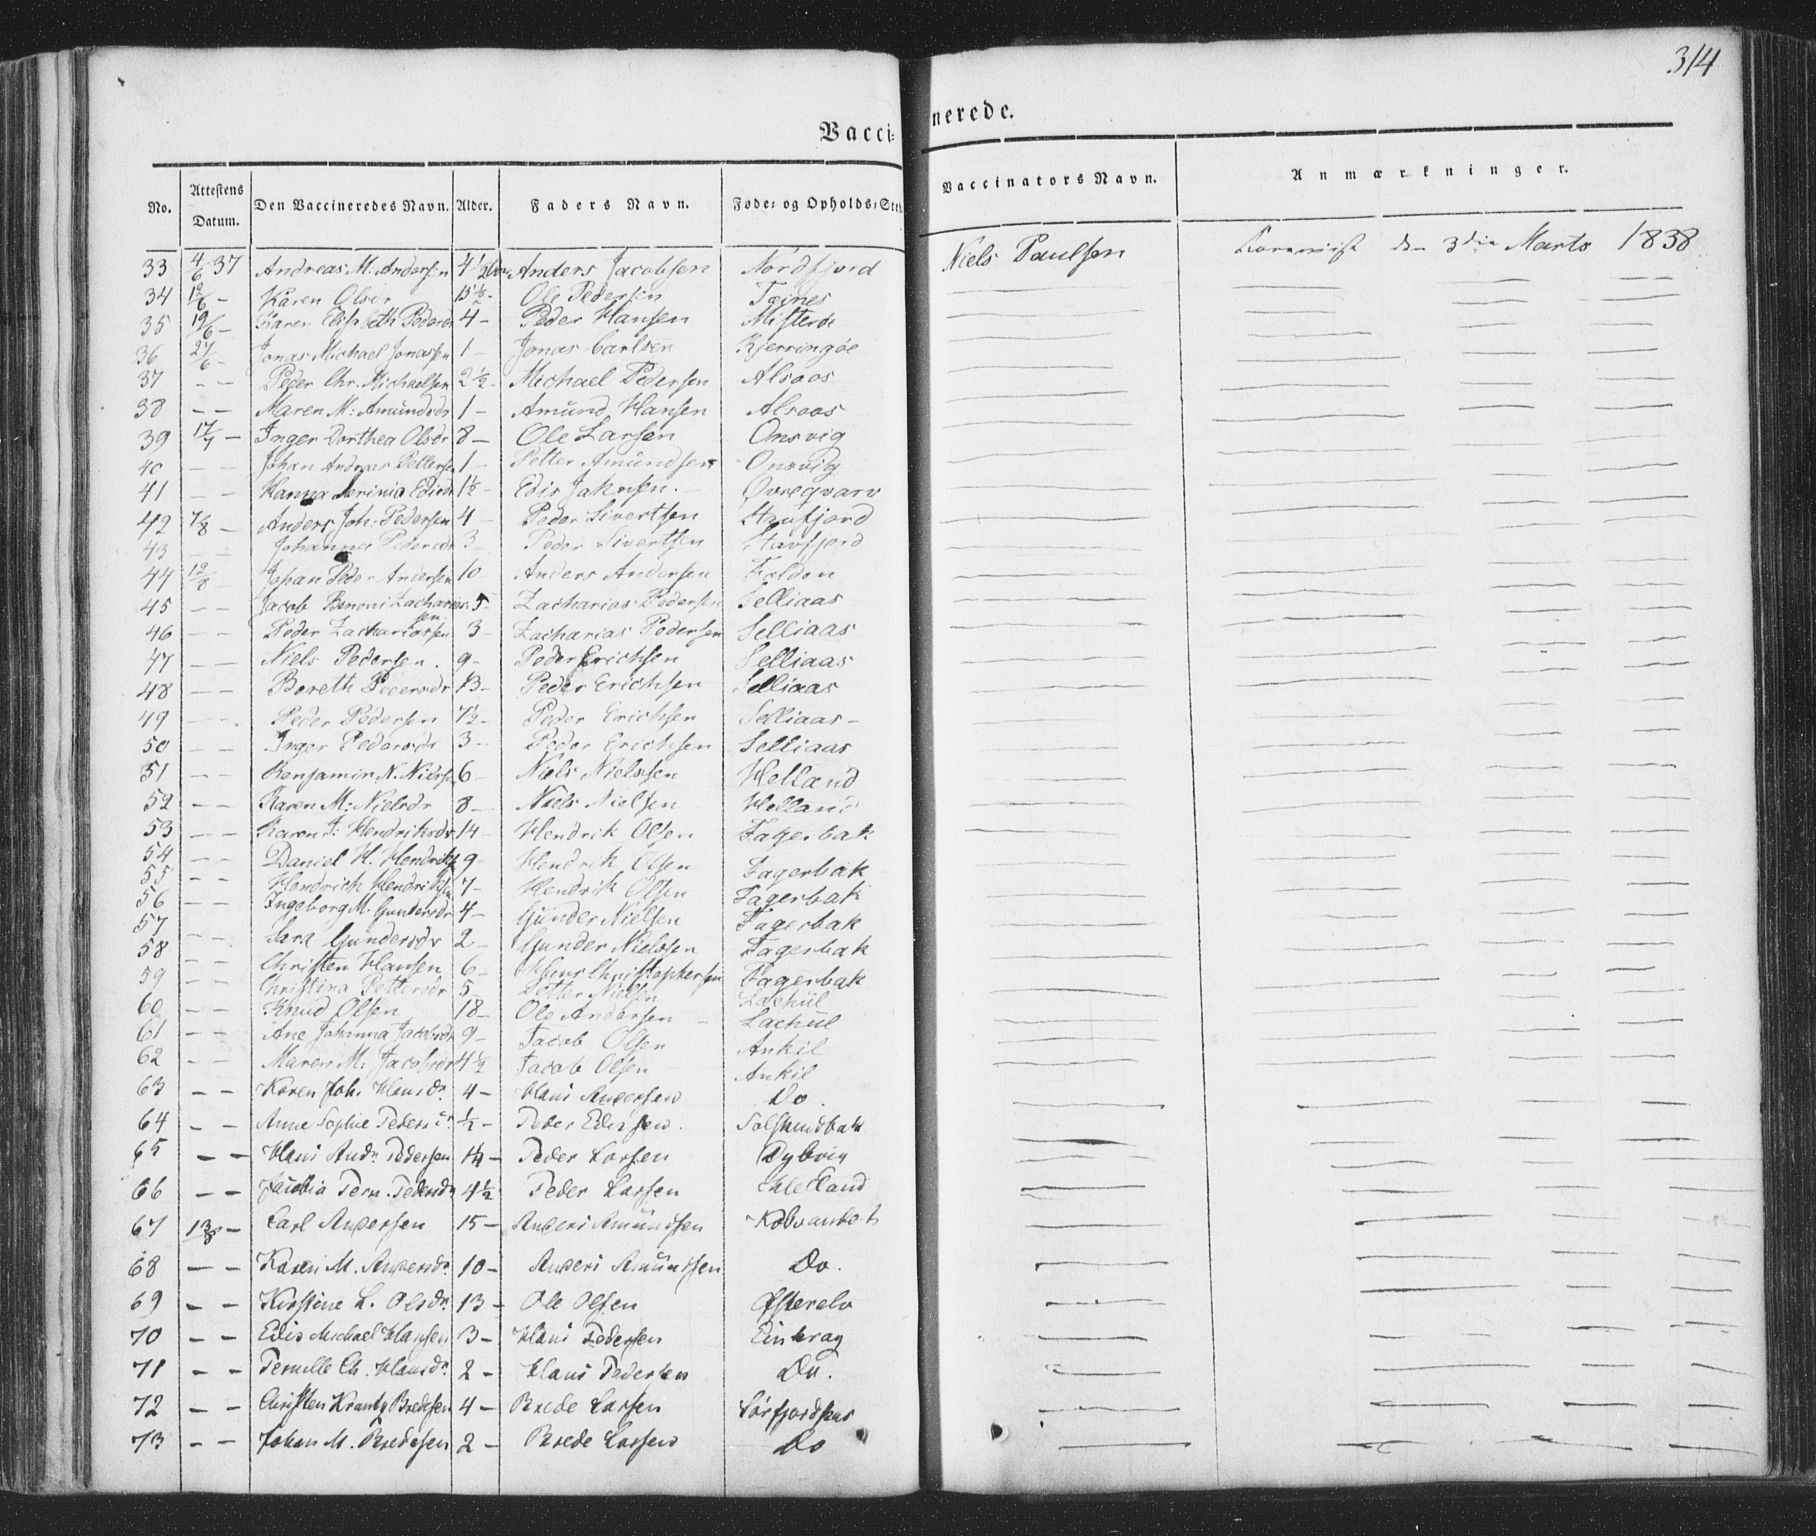 314
Vaccinerede.
No. Attestens Datum. Den Vaccineredes Navn. Alder. Faders Navn. Føde- og Opholds-Sted. Vaccinators Navn. Anmærkninger.
33 4/6 37 Andreas M. Andersen 4 1/2 Anders Jacobsen Nordfjord Niels Paulsen den 3die Marts 1838
34 12/6 – Karen Olsdr 15 1/2 - Ole Pedersen Tænes
35 19/6 – Karen Elisabeth Pedersdr 4 - Peder Hansen Misterøe
36 27/6 – Jonas Michael Jonassen 1 – Jonas Carlsen Kjerringøe
37 – – Peder Chr. Michaelsen 2 1/2 - Michael Pedersen Alsoos
38 – – Maren M: Amundsdr 1 - Amund Hansen Alsoos
39 17/7 – Inger Dorthea Olsdr 8 – Ole Larsen Onsvig
40 – – Johan Andreas Pettersen 1 – Petter Amundsen Onsvig
41 – – Hanna Edisdr 1 1/2 - Edis Jakobsen. Øvreqvarv
42 7/8 – Anders Joh. Pedersen 4 – Peder Sivertsen Havfjord
43 – – Johanna Pedersdr 3 – Peder Sivertsen Havfjord
44 12/8 – Johan Peder Andersen 10 Anders Andersen Folden
45 – – Jacob Benoni Zachariassen 5 - Zacharias Pedersen Selliaas
46 – – Peder Zachariassen 3 – Zacharias Pedersen Selliaas
47 – – Niels Pedersen. 9 - Peder Erichsen Selliaas
48 – – Bereth Pedersdr 13 – Peder Erichsen Selliaas
49 – – Peder Pedersen 7 1/2 - Peder Erichsen Selliaas –
50 – – Inger Pedersdr 3 – Peder Erichsen Selliaas
51 – – Benjamin N. Nielsen 6 – Niels Nielsen Helland
52 – – Karen M: Nielsdr 8 – Niels Nielsen Helland
53 – – Karen J: Hendriksdr 14 – Hendrik Olsen Fagerbak
54 – – Daniel H. Hendriks 9 – Hendrik Olsen Fagerbak
55 – – Hendrich Hendriksen 7 – Hendrik Olsen Fagerbak
56 – – Ingeborg M. Gundersdr 4 – Gunder Nielsen Fagerbak
57 – – Sara Gundersdr 2 – Gunder Nielsen Fagerbak
58 – – Christen Hansen 6 – Hans Christophersen Fagerbak
59 – – Christina Pettersdr 5 – Petter Nielsen
60 – – Knud Olsen 18 – Ole Andersen
61 – – Ane Johanna Jacobsdr 9 – Jacob Olsen Ankil
62 – – Maren M. Jacobsdr 4 1/2 Jacob Olsen Ankil
63 – – Karen Joh. Hansdr. 4 – Hans Andersen Do.
64 – – Anne Sophie Pedersdr. 1/2 – Peder Edissen.
65 – – Hans Andr. Pedersen 14 – Peder Larsen Dybvig
66 – – Pern. Pedersdr 4 1/2 Peder Larsen
67 13/8 – Carl Andersen 15 – Anders Amundsen
68 – – Karen M. Andersdr. 10 – Anders Amundsen Do.
69 – – Kirstine L. Olsdr. 13 – Ole Olsen Østerelv
70 – – Edis Michael Hansen 3 – Hans Pedersen
71 – – Pernille Ch. Hansdr. 2 – Hans Pedersen Do.
72 – – Christen Krantz Bredesen 4 – Brede Larsen
73 – – Johan M. Bredesen 2 – Brede Larsen Do